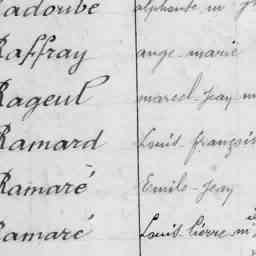 Raffray ange-marie
Rageul marcel-Jean
Ramard Louis françois
Ramaré Emile-Jean
Ramaré Louis Pierre m